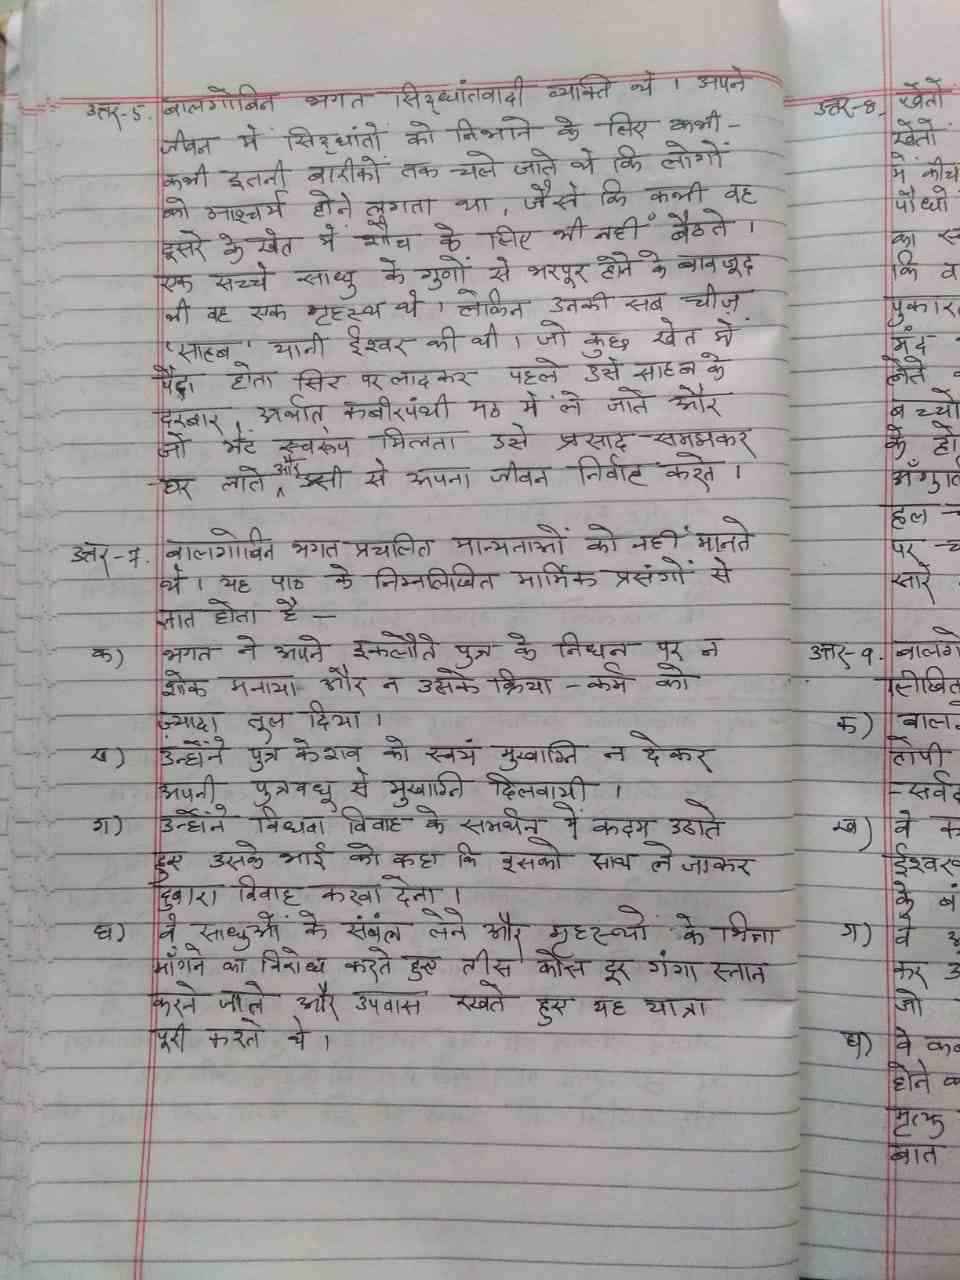 उत्तर-5. बालगोबिन भगत सिद्धांतवादी व्यक्ति थे । अपने
जीवन में सिद्धांतों को निभाने के लिए कभी -
कभी इतनी बारीकों तक चले जाते थे कि लोगों
को आश्चर्य होने लगता था, जैसे कि कभी वह
दूसरे के खेत में शौच के लिए भी नहीं बैठते ।
एक सच्चे साधु के गुणों से भरपूर होने के बावजूद
भी वह एक गृहस्थ थे । लेकिन उनकी सब चीज़
'साहब' यानी ईश्वर की थी । जो कुछ खेत में
पैदा होता सिर पर लादकर पहले उसे साहब के
दरबार अर्थात् कबीरपंथी मठ में ले जाते और
जो भेंट स्वरूप मिलता उसे प्रसाद समझकर
घर लाते और उसी से अपना जीवन निर्वाह करते ।
उत्तर-7. बालगोबिन भगत प्रचलित मान्यताओं को नहीं मानते
थे । यह पाठ के निम्नलिखित मार्मिक प्रसंगों से
ज्ञात होता है -
क) भगत ने अपने इकलौते पुत्र के निधन पर न
शोक मनाया और न उसके क्रिया - कर्म को
ज़्यादा तूल दिया ।
ख) उन्होंने पुत्र के शव को स्वयं मुखाग्नि न देकर
अपनी पुत्रवधू से मुखाग्नि दिलवायी ।
ग) उन्होंने विधवा विवाह के समर्थन में कदम उठाते
हुए उसके भाई को कहा कि इसको साथ ले जाकर
दुबारा विवाह करवा देना ।
घ) वे साधुओं के संबल लेने और गृहस्थों के भिक्षा
माँगने का विरोध करते हुए तीस कोस दूर गंगा स्नान
करने जाते और उपवास रखते हुए यह यात्रा
पूरी करते थे ।
उत्तर-8. खेतों
खेतों
में कीच
पौधों
का स्
कि व
पुकार
मंद
लेते
बच्चों
के हो
अँगुलि
हल -
पर -
सारे
उत्तर-9. बालगो
लिखित
क) बाल
टोपी
- सर्वद
ख) वे क
ईश्वर
के बं
ग) वे
कर उ
जो
घ) वे कब
होने क
मृत्यु
बात